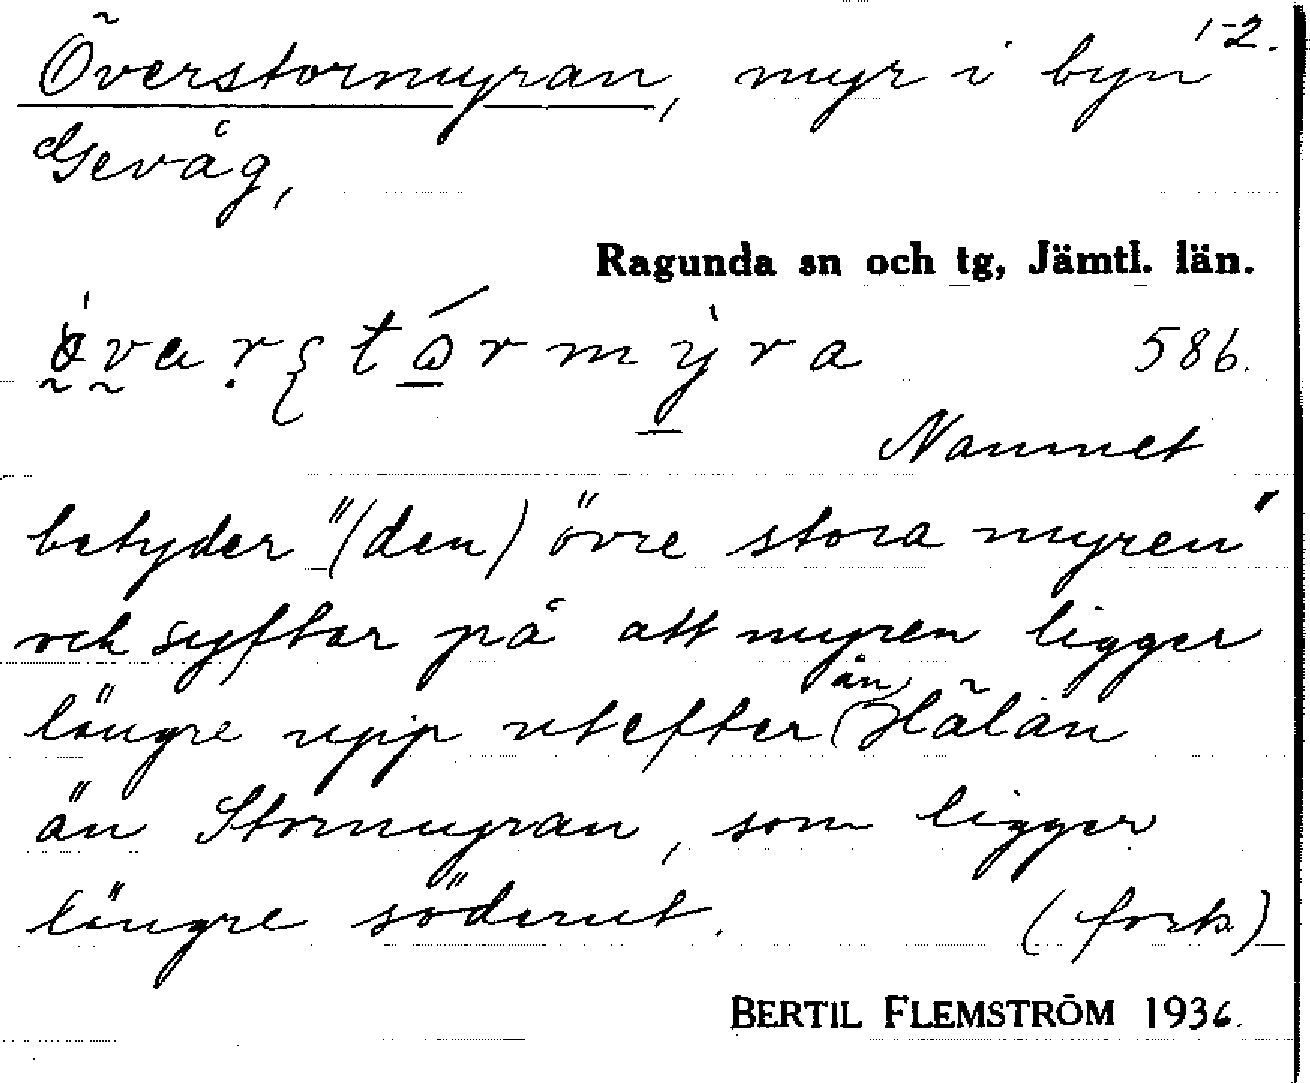 Överstormyran, myr i byn 1-2.
Gevåg,
Ragunda sn och tg, Jämtl. län.
586.
Namnet
betyder "(den) övre stora myren"
och syftar på att myren ligger
längre upp utefter (ån) Hälån
än Stormyran, som ligger
längre söderut. (forts)
BERTIL FLEMSTRÖM 1936.